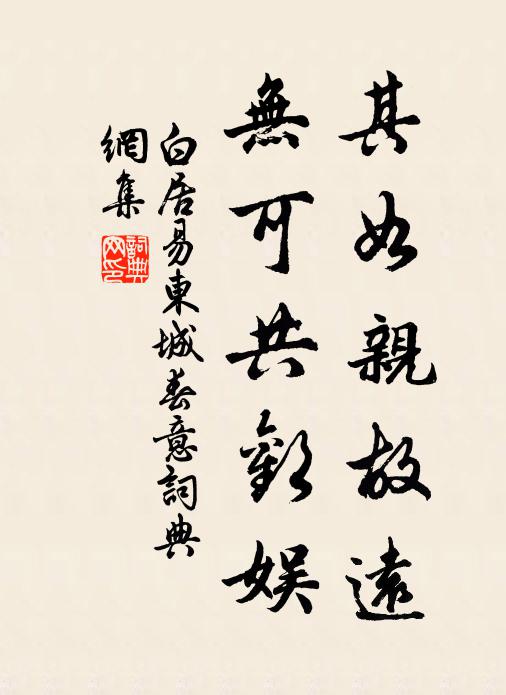 其如親故遠
無可共歡娛
白居易東城春意詞典
網集
詞典
网印